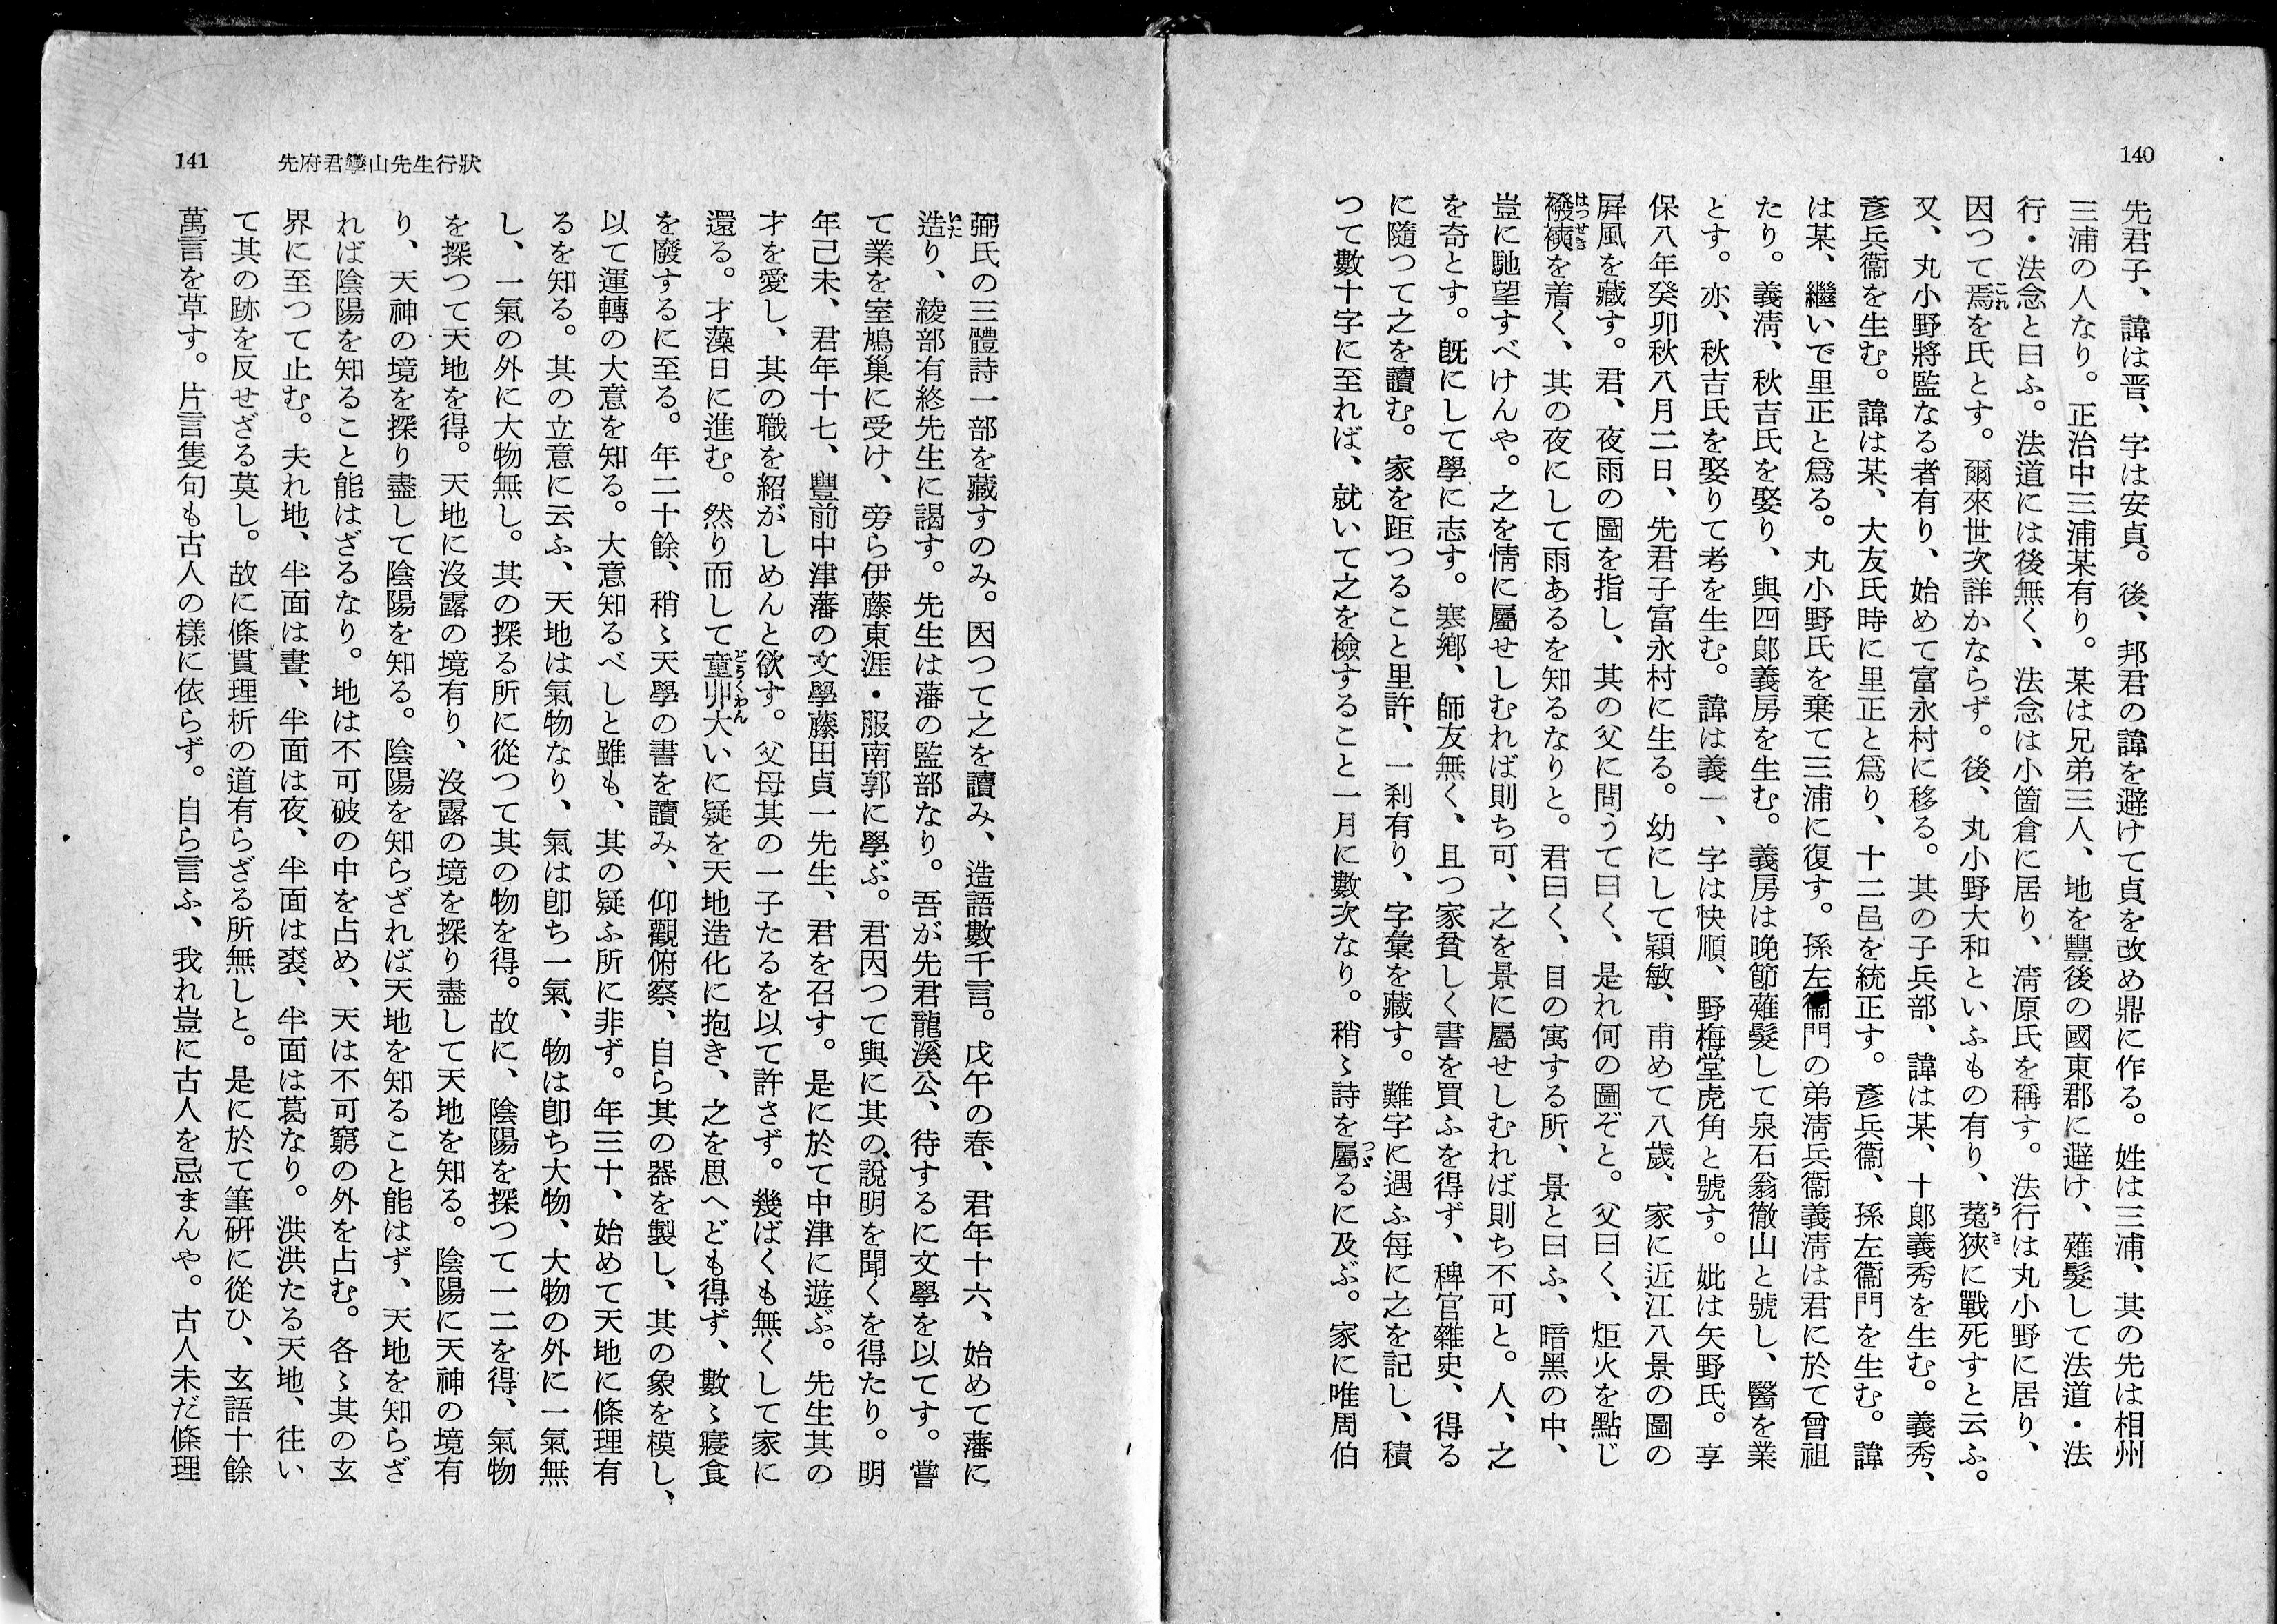 140
先君子、諱は晋、字は安貞。後、邦君の諱を避けて貞を改め鼎に作る。姓は三浦、其の先は相州
三浦の人なり。正治中三浦某有り。某は兄弟三人、地を豐後の國東郡に避け、薙髮して法道・法
行・法念と曰ふ。法道には後無く、法念は小箇倉に居り、淸原氏を稱す。法行は丸小野に居り、
因つて焉を氏とす。爾來世次詳かならず。後、丸小野大和といふもの有り、菟狹に戰死すと云ふ。
又、丸小野將監なる者有り、始めて富永村に移る。其の子兵部、諱は某、十郞義秀を生む。義秀、
彥兵衞を生む。諱は某、大友氏時に里正と爲り、十二邑を統正す。彥兵衞、孫左衞門を生む。諱
は某、繼いで里正と爲る。丸小野氏を棄て三浦に復す。孫左衞門の弟淸兵衞義淸は君に於て曾祖
たり。義淸、秋吉氏を娶り、與四郞義房を生む。義房は晚節薙髮して泉石翁徹山と號し、醫を業
とす。亦、秋吉氏を娶りて考を生む。諱は義一、字は快順、野梅堂虎角と號す。妣は矢野氏。享
保八年癸卯秋八月二日、先君子富永村に生る。幼にして穎敏、甫めて八歲、家に近江八景の圖の
屛風を藏す。君、夜雨の圖を指し、其の父に問うて曰く、是れ何の圖ぞと。父曰く、炬火を點じ
襏襫を着く、其の夜にして雨あるを知るなりと。君曰く、目の寓する所、景と曰ふ、暗黑の中、
豈に馳望すべけんや。之を情に屬せしむれば則ち可、之を景に屬せしむれば則ち不可と。人、之
を奇とす。旣にして學に志す。寒鄕、師友無く、且つ家貧しく書を買ふを得ず、稗官雜史、得る
に隨つて之を讀む。家を距つること里許、一刹有り、字彙を藏す。難字に遇ふ每に之を記し、積
つて數十字に至れば、就いて之を檢すること一月に數次なり。稍〻詩を屬るに及ぶ。家に唯周伯
141
先府君孿山先生行狀
弼氏の三體詩一部を藏すのみ。因つて之を讀み、造語數千言。戊午の春、君年十六、始めて藩に
造り、綾部有終先生に謁す。先生は藩の監部なり。吾が先君龍溪公、待するに文學を以てす。嘗
て業を室鳩巢に受け、旁ら伊藤東涯・服南郭に學ぶ。君因つて與に其の說明を聞くを得たり。明
年己未、君年十七、豐前中津藩の文學藤田貞一先生、君を召す。是に於て中津に遊ぶ。先生其の
才を愛し、其の職を紹がしめんと欲す。父母其の一子たるを以て許さず。幾ばくも無くして家に
還る。才藻日に進む。然り而して童丱大いに疑を天地造化に抱き、之を思へども得ず、數〻寢食
を廢するに至る。年二十餘、稍〻天學の書を讀み、仰觀俯察、自ら其の器を製し、其の象を模し、
以て運轉の大意を知る。大意知るべしと雖も、其の疑ふ所に非ず。年三十、始めて天地に條理有
るを知る。其の立意に云ふ、天地は氣物なり、氣は卽ち一氣、物は卽ち大物、大物の外に一氣無
し、一氣の外に大物無し。其の探る所に從つて其の物を得。故に、陰陽を探つて一二を得、氣物
を探つて天地を得。天地に沒露の境有り、沒露の境を探り盡して天地を知る。陰陽に天神の境有
り、天神の境を探り盡して陰陽を知る。陰陽を知らざれば天地を知ること能はず、天地を知らざ
れば陰陽を知ること能はざるなり。地は不可破の中を占め、天は不可窮の外を占む。各〻其の玄
界に至つて止む。夫れ地、半面は晝、半面は夜、半面は裘、半面は葛なり。洪洪たる天地、往い
て其の跡を反せざる莫し。故に條貫理析の道有らざる所無しと。是に於て筆硏に從ひ、玄語十餘
萬言を草す。片言隻句も古人の樣に依らず。自ら言ふ、我れ豈に古人を忌まんや。古人未だ條理